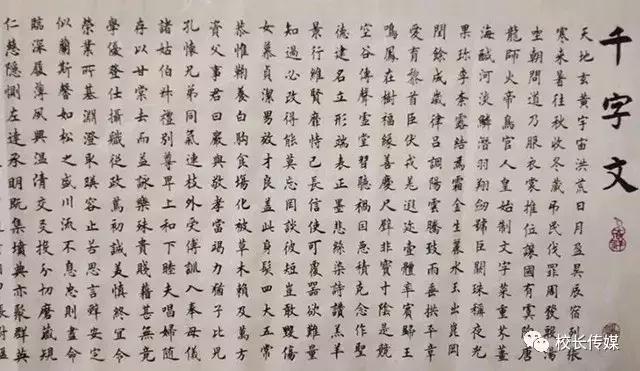 千字文
天地玄黃宇宙洪荒日月盈昃辰宿列張
寒来暑往秋收冬歲弔民伐罪周發殷湯
坐朝問道乃服衣裳推位讓國有虞陶唐
龍師火帝鳥官人皇始制文字菜重芥薑
海鹹河淡鱗潛羽翔劍號巨闕珠稱夜光
果珍李柰露結為霜金生麗水玉出崑岡
閏餘成歲律呂調陽雲騰致雨垂拱平章
愛育黎首臣伏戎羌遐迩壹體率賓歸王
鳴鳳在樹福緣善慶尺璧非寶寸陰是競
空谷傳聲虛堂習聽禍因惡積克念作聖
德建名立形端表正墨悲絲染詩讚羔羊
景行維賢靡恃己長信使可覆器欲難量
知過必改得能莫忘罔談彼短豈敢毀傷
女慕貞潔男效才良蓋此身髮四大五常
恭惟鞠養白駒食場化被草木賴及萬方
資父事君曰嚴與敬孝當竭力猶子比兒
孔懷兄弟同氣連枝外受傅訓入奉母儀
諸姑伯叔禮別尊卑上和下睦夫唱婦隨
存以甘棠去而益詠樂殊貴賤籍甚無竟
學優登仕攝職從政篤初誠美慎終宜令
榮業所基淵澄取暎容止若思言辭安定
似蘭斯馨如松之盛川流不息忠則盡命
臨深履薄夙興溫凊交友投分切磨箴規
仁慈隱惻左達承明既集墳典亦聚群英
校长传媒